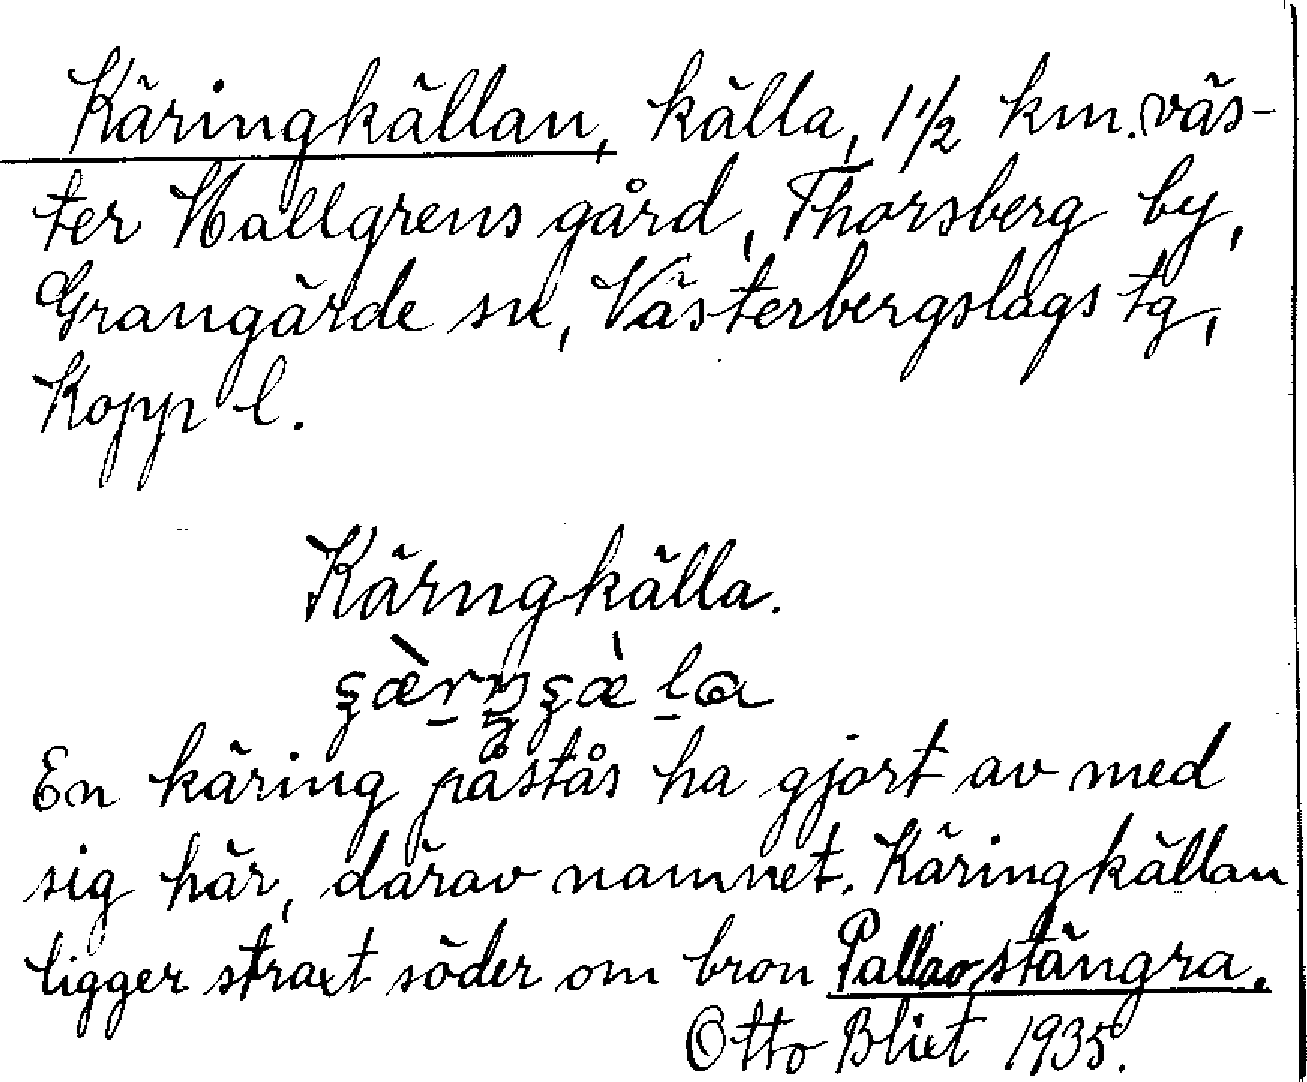 Käringkällan, källa, 1 1/2 km. väs-
ter Hallgrens gård, Thorsberg by,
Grangärde sn, Västerbergslags tg,
Kopp l.
Kärngkälla.
En käring påstås ha gjort av med
sig här, därav namnet. Käringkällan
ligger straxt söder om bron Pallarstängra.
Otto Blixt 1935.